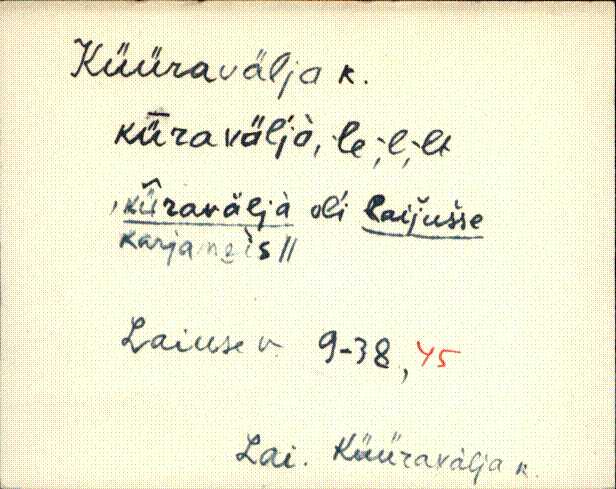 Küüravälja k.
kǖraväĺjà, -le, -l, -lt
kǖraväljà oĺi laijušše
karjamɐis //
Laiuse v. 9-38, 45
Lai. Küüravälja k.